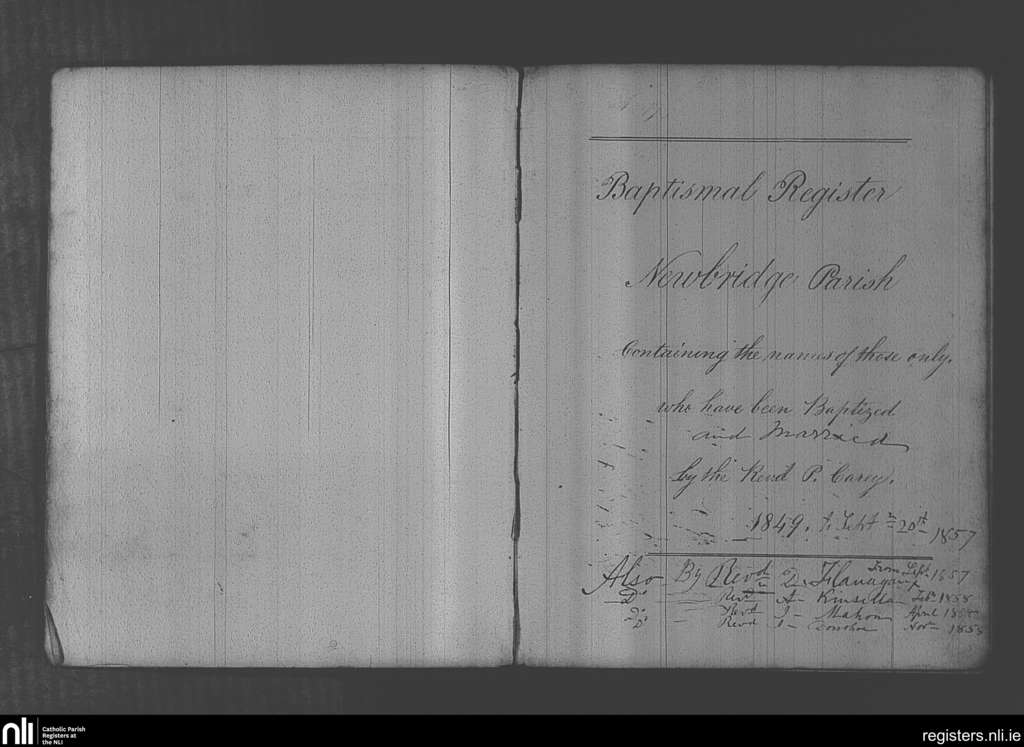 Baptismal Register
Newbridge Parish
Containing the names of those only,
who have been Baptized
and Married
by the Revd P. Carey.
1849. to Sept 20th 1857
Also By Revd Flanagan From Sept. 1857
Do Revd A Kinsella Feb 1858
Do Revd J Mahon April 1858
Do Revd J Donohoe Novr 1858
nli
Catholic Parish
Registers at
the NLI
registers.nli.ie